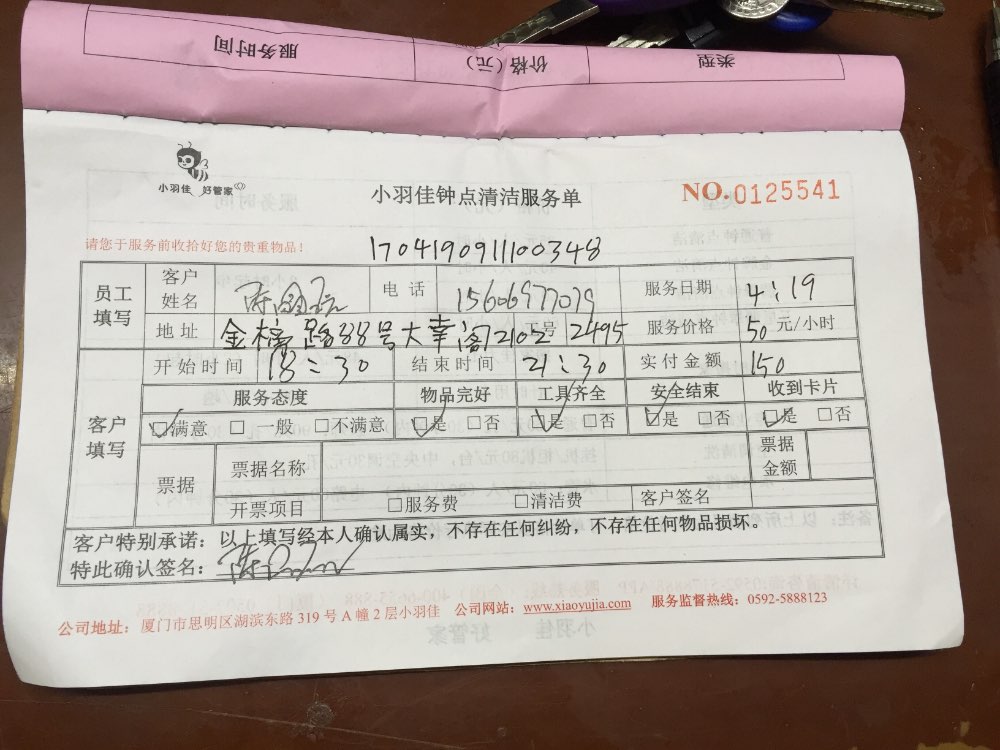 服务时间 价格(元) 类型
小羽佳 好管家
小羽佳钟点清洁服务单
NO.0125541
请您于服务前收拾好您的贵重物品!
170419091100348
员工填写 客户姓名 电话 15606977079 服务日期 4:19
地址 金榜路88号大幸阁2102 工号 2495 服务价格 50 元/小时
开始时间 18:30 结束时间 21:30 实付金额 150
客户填写 服务态度 物品完好 工具齐全 安全结束 收到卡片
☑满意 □一般 □不满意 ☑是 □否 ☑是 □否 ☑是 □否 ☑是 □否
票据 票据名称 票据金额
开票项目 □服务费 □清洁费 客户签名
客户特别承诺:以上填写经本人确认属实,不存在任何纠纷,不存在任何物品损坏。
特此确认签名:
公司地址:厦门市思明区湖滨东路 319 号 A 幢 2 层小羽佳 公司网站:www.xiaoyujia.com 服务监督热线:0592-5888123
小羽佳 好管家